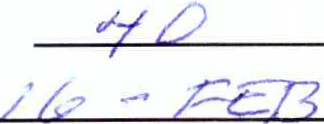 40
16-FEB